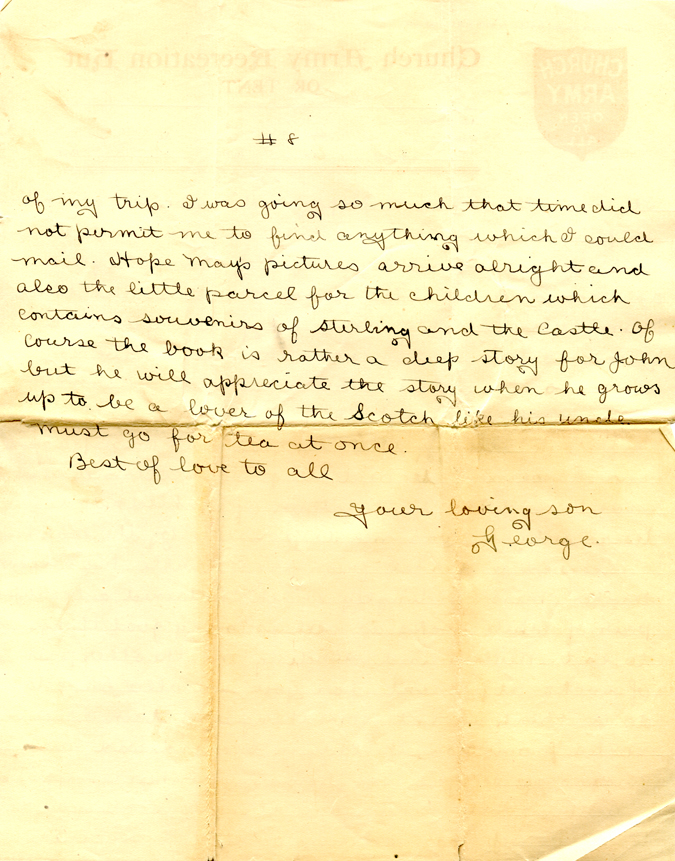 Church Army Recreation Hut
OR TENT
CHURCH
ARMY
# 8
of my trip. I was going so much that time did
not permit me to find anything which I could
mail. Hope May's pictures arrive alright and
also the little parcel for the children which
contains souvenirs of Stirling and the Castle. Of
course the book is rather a deep story for John
but he will appreciate the story when he grows
up to be a lover of the Scotch like his uncle.
Must go for tea at once.
Best of love to all
Your loving son
George.